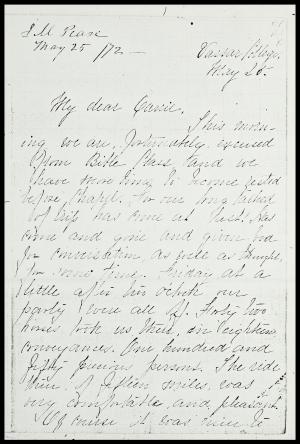 S. M. Pease
May 25 /72
Vassar College
May 26.
My dear Carrie,
This morn-
ing we are, fortunately, excused
from Bible Class and we
have more time to become rested
before Chapel. For our long talked
of trip has come at last. Has
come and gone and given food
for conversation as well as thought
for some time. Friday at a
little after six o'clock our
party were all off. Forty two
horses took us there, in eighteen
conveyances. One hundred and
fifty precious persons. The ride
there of fifteen miles, was
very comfortable and pleasant.
Of course it was nice to